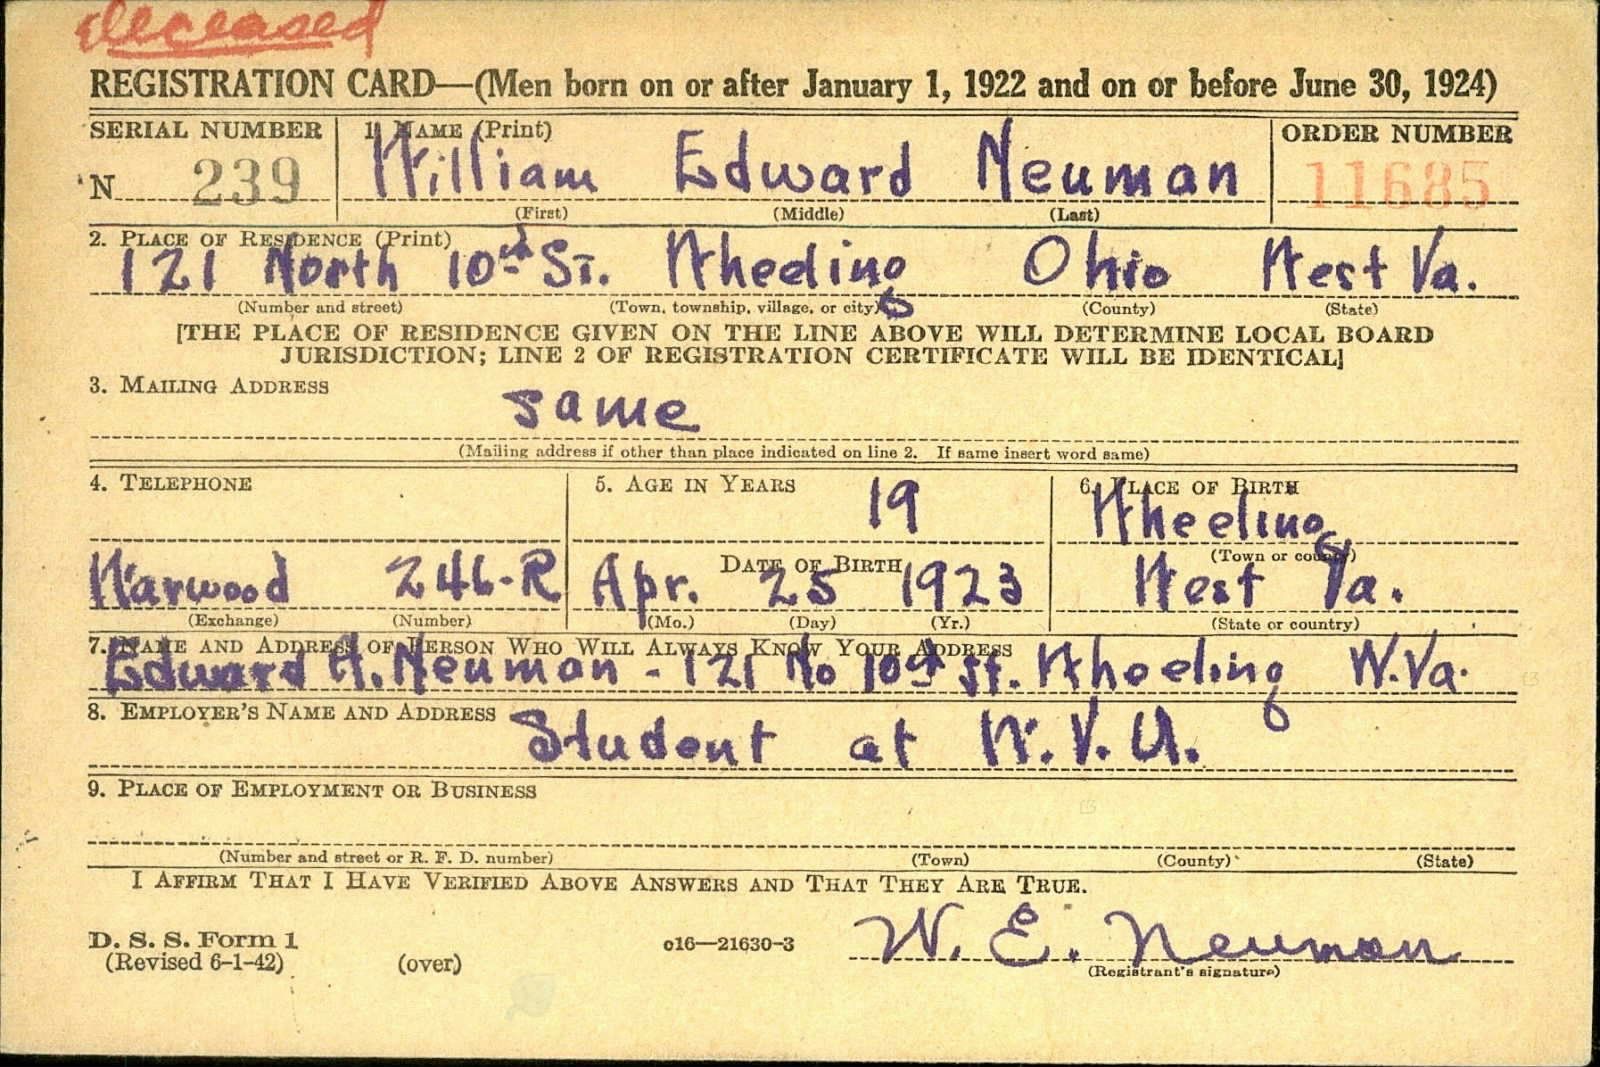 deceased
REGISTRATION CARD—(Men born on or after January 1, 1922 and on or before June 30, 1924)
SERIAL NUMBER 1. NAME (Print) ORDER NUMBER
N 239 William Edward Neuman 11685
(First) (Middle) (Last)
2. PLACE OF RESIDENCE (Print)
121 North 10th St. Wheeling Ohio West Va.
(Number and street) (Town, township, village, or city) (County) (State)
[THE PLACE OF RESIDENCE GIVEN ON THE LINE ABOVE WILL DETERMINE LOCAL BOARD
JURISDICTION; LINE 2 OF REGISTRATION CERTIFICATE WILL BE IDENTICAL]
3. MAILING ADDRESS
same
(Mailing address if other than place indicated on line 2. If same insert word same)
4. TELEPHONE 5. AGE IN YEARS 6. PLACE OF BIRTH
19 Wheeling
DATE OF BIRTH (Town or county)
Warwood 246-R Apr. 25 1923 West Va.
(Exchange) (Number) (Mo.) (Day) (Yr.) (State or country)
7. NAME AND ADDRESS OF PERSON WHO WILL ALWAYS KNOW YOUR ADDRESS
Edward A. Neuman - 121 No 10th St. Wheeling W.Va.
8. EMPLOYER'S NAME AND ADDRESS
Student at W.V.U.
9. PLACE OF EMPLOYMENT OR BUSINESS
(Number and street or R. F. D. number) (Town) (County) (State)
I AFFIRM THAT I HAVE VERIFIED ABOVE ANSWERS AND THAT THEY ARE TRUE.
D. S. S. Form 1 o16—21630-3 W. E. Neuman
(Revised 6-1-42) (over) (Registrant's signature)